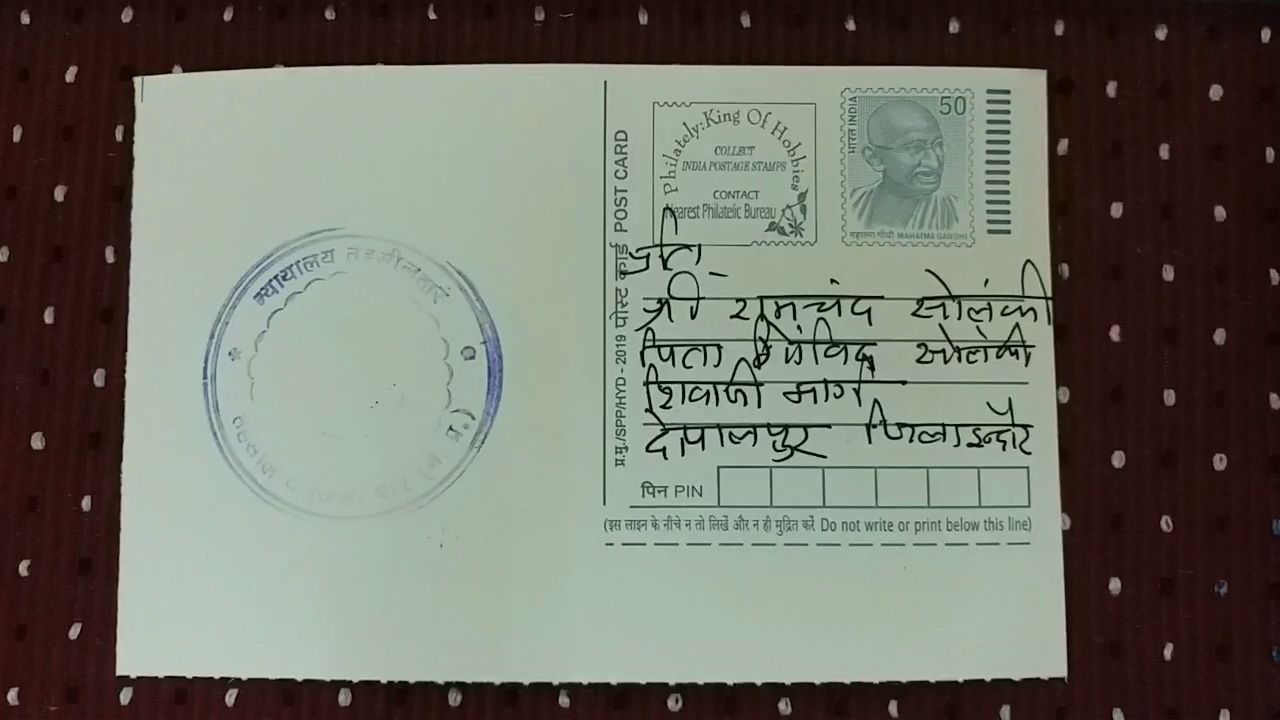 न्यायालय तहसीलदार
प्र.मु./SPP/HYD - 2019 पोस्ट कार्ड POST CARD
Philately: King Of Hobbies
COLLECT
INDIA POSTAGE STAMPS
CONTACT
Nearest Philatelic Bureau
भारत INDIA
50
महात्मा गाँधी MAHATMA GANDHI
प्रति
श्री रामचंद सोलंकी
पिता गोविंद सोलंकी
शिवाजी मार्ग
देपालपुर जिला इन्दौर
पिन PIN
(इस लाइन के नीचे न तो लिखें और न ही मुद्रित करें Do not write or print below this line)